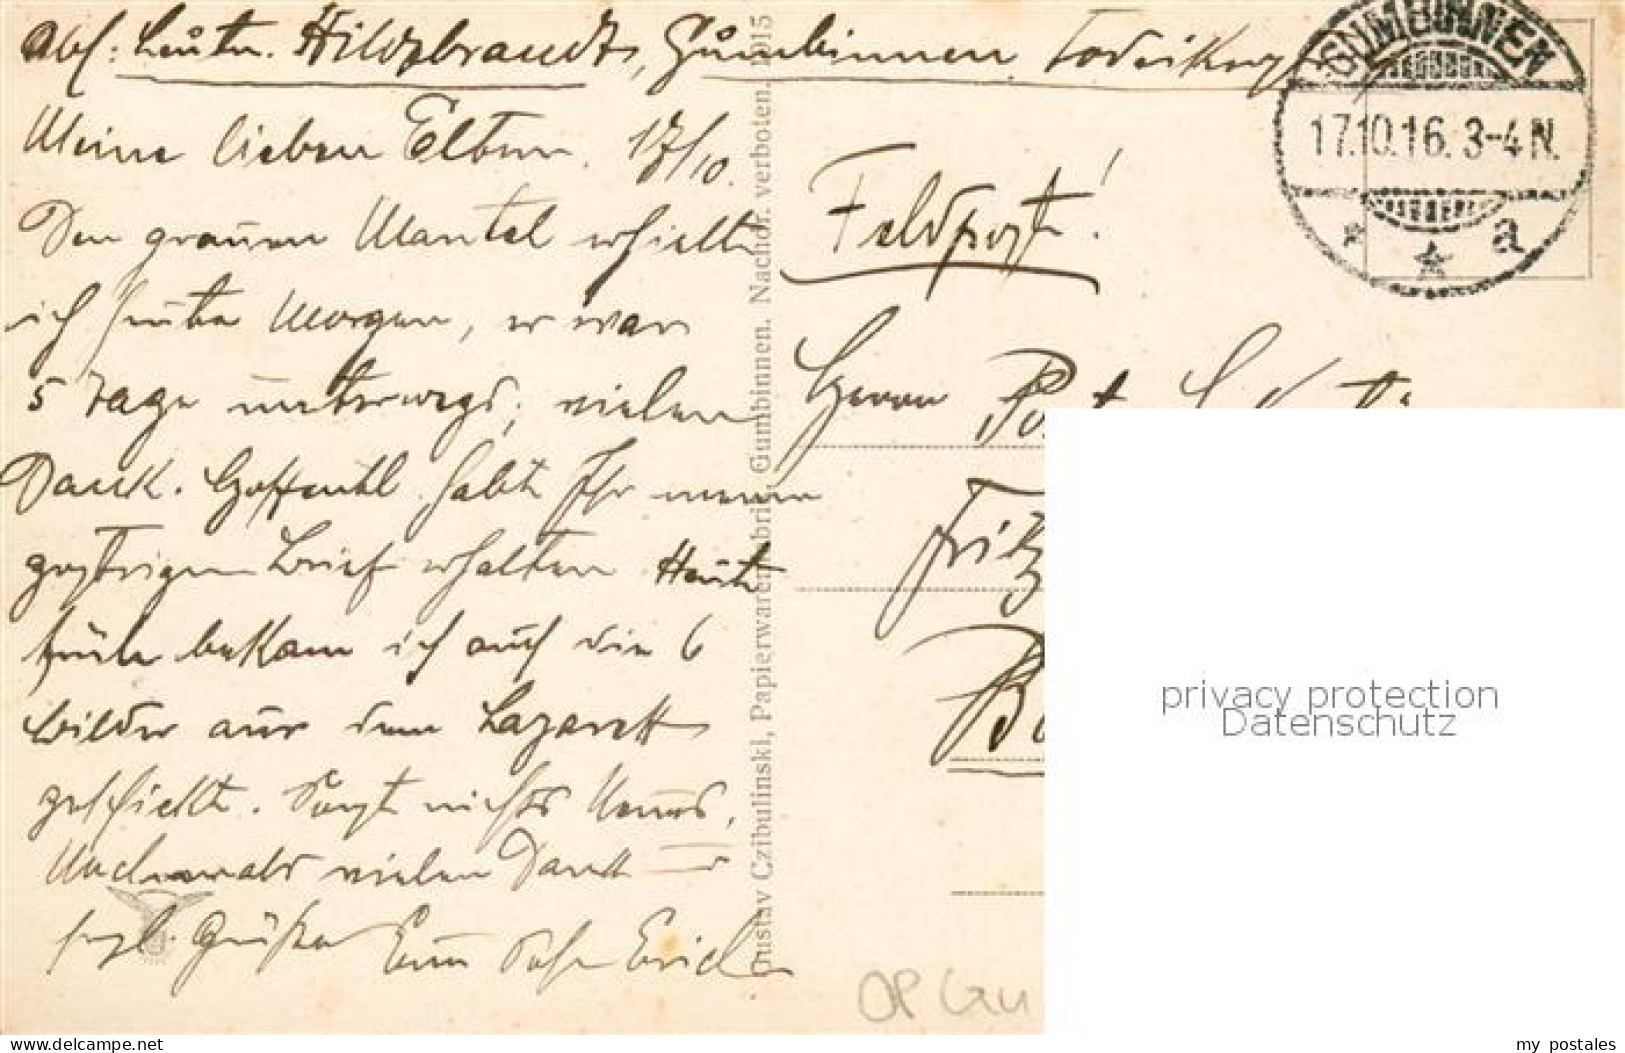 Abs: Leutn. Hildebrandt, Gumbinnen
Meine lieben Eltern. 17/10.
Den grauen Mantel erhielt
ich heute Morgen, er war
5 Tage unterwegs, vielen
Dank. Hoffentl. habt Ihr meinen
gestrigen Brief erhalten Heute
früh bekam ich auch die 6
Bilder aus dem Lazarett
geschickt. Sonst nichts Neues,
Nochmals vielen Dank
herzl. Grüße Euer Sohn Erich
Gustav Czibulinski, Papierwarenfabrik, Gumbinnen. Nachdr. verboten. 1915
GUMBINNEN
17.10.16. 3-4 N.
* * a
Feldpost!
Herrn
Fritz
privacy protection
Datenschutz
www.delcampe.net
my_postales